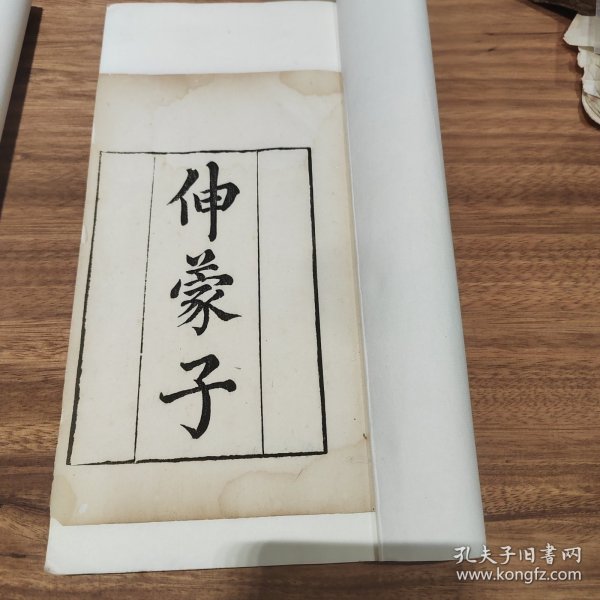 伸蒙子
孔夫子旧书网
www.kongfz.com